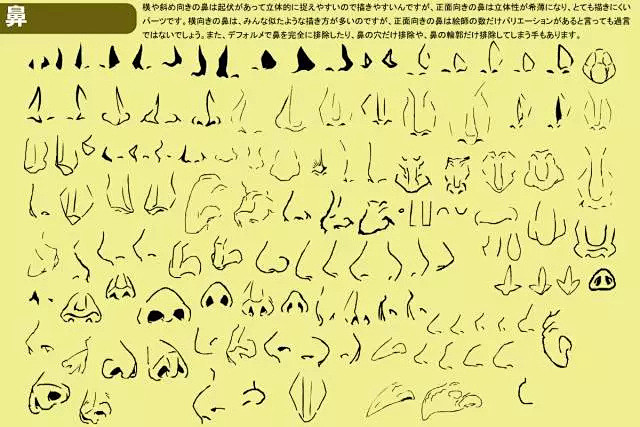 鼻
横や斜め向きの鼻は起伏があって立体的に捉えやすいので描きやすいんですが、正面向きの鼻は立体性が希薄になり、とても描きにくい
パーツです。横向きの鼻は、みんな似たような描き方が多いのですが、正面向きの鼻は絵師の数だけバリエーションがあると言っても過言
ではないでしょう。また、デフォルメで鼻を完全に排除したり、鼻の穴だけ排除や、鼻の輪郭だけ排除してしまう手もあります。